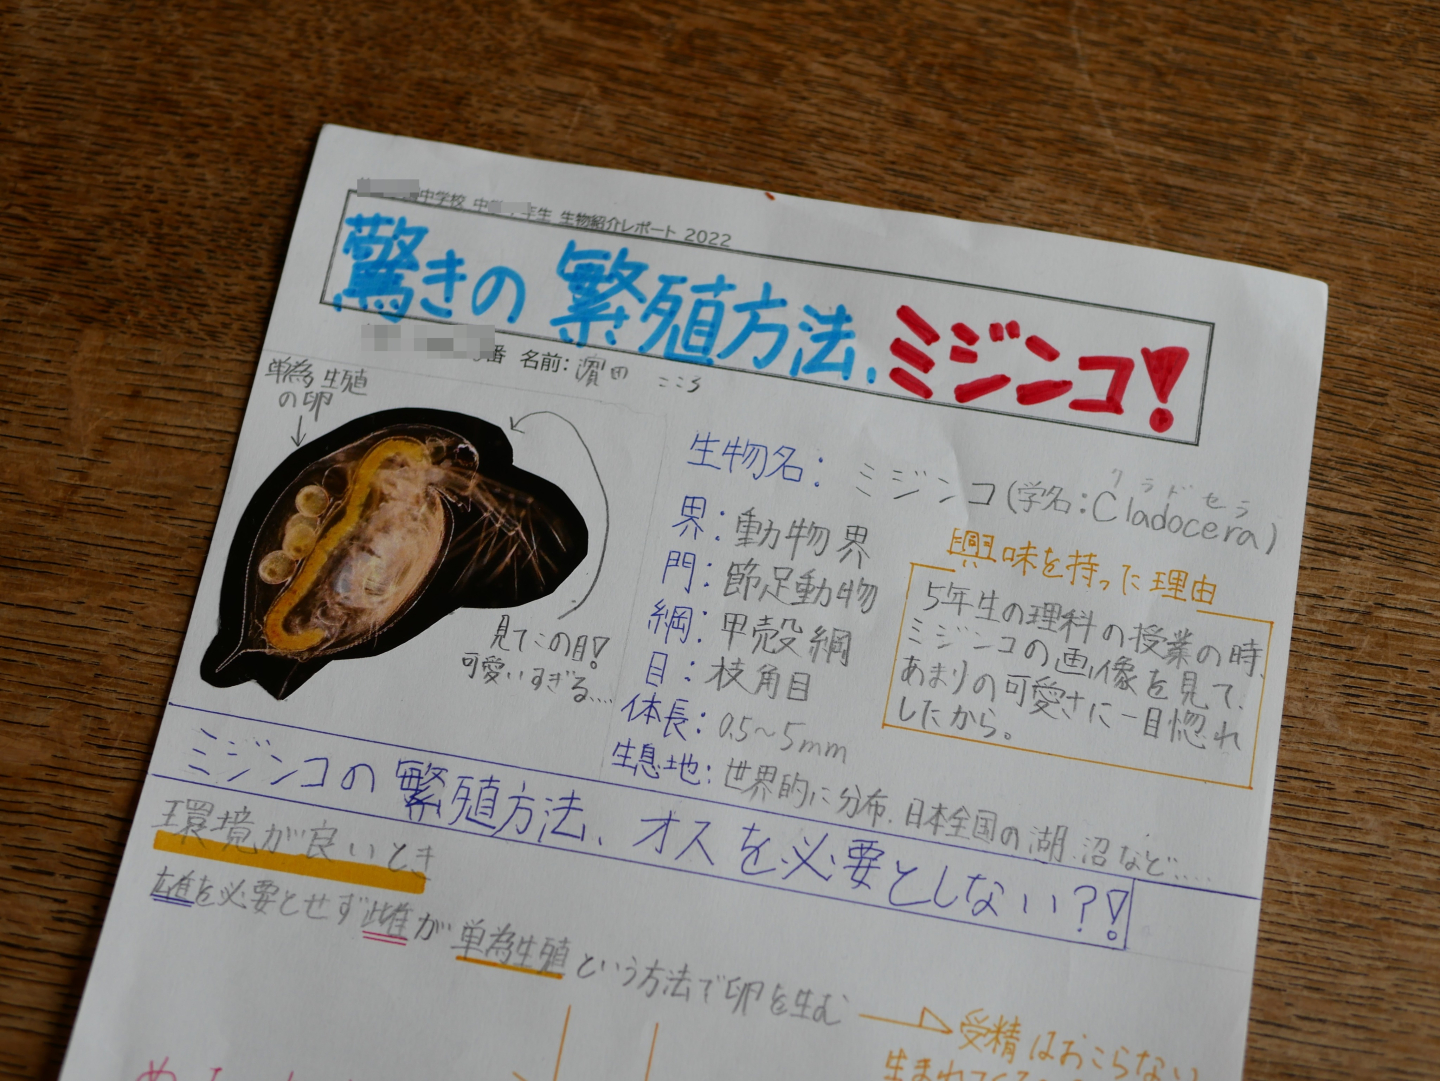 中学校 中 年生 生物紹介レポート 2022
驚きの繁殖方法、ミジンコ!
番 名前: 濱田 こころ
単為生殖
の卵
見てこの目!
可愛いすぎる...
生物名: ミジンコ(学名:Cladocera)
クラドセラ
界:動物界
門:節足動物
綱:甲殻綱
目:枝角目
体長:0.5~5mm
生息地:世界的に分布、日本全国の湖、沼など.....
興味を持った理由
5年生の理科の授業の時、
ミジンコの画像を見て、
あまりの可愛さに一目惚れ
したから。
ミジンコの繁殖方法、オスを必要としない?!
環境が良いとき
雄を必要とせず雌が単為生殖という方法で卵を生む
受精はおこらない
生まれてくる